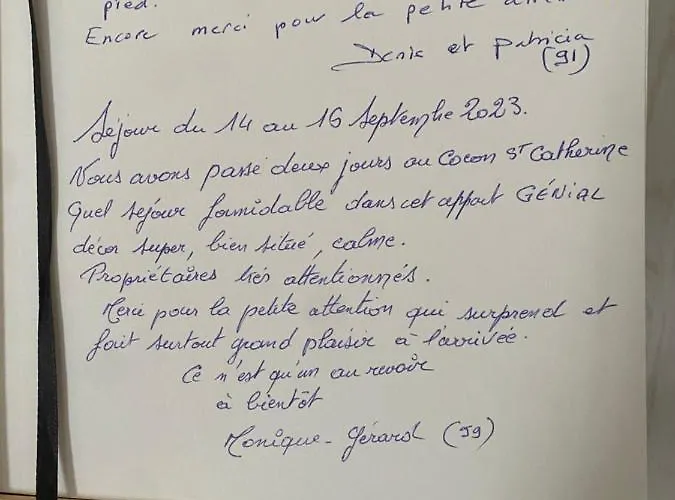 pied.
Encore merci pour la petite
Denis et Patricia
(91)
Séjour du 14 au 16 Septembre 2023.
Nous avons passé deux jours au Cocon ST Catherine
Quel séjour formidable dans cet appart GÉNIAL
décor super, bien situé, calme.
Propriétaires très attentionnés.
Merci pour la petite attention qui surprend et
fait surtout grand plaisir à l'arrivée.
Ce n'est qu'un au revoir
à bientôt
Monique - Gérard (59)